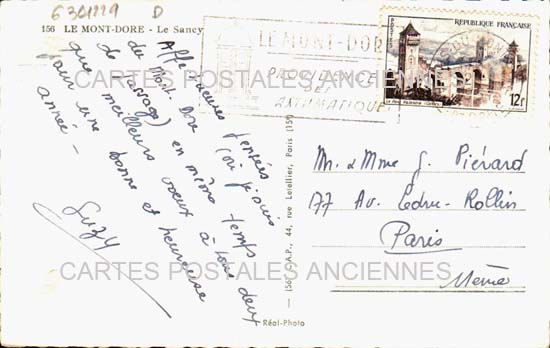 6301119 D
156 LE MONT-DORE - Le Sancy
Affectueuses pensées
du Mont-Dore (où je suis
de passage) en même temps
que meilleurs voeux à tous deux
pour une bonne et heureuse
année -
Suzy
LE MONT-DORE
PROVIDENCE
DE
ASTHMATIQUE
REPUBLIQUE FRANÇAISE
12F
Le Pont Valentré (Cahors)
M. & Mme G. Piérard
177 Av. Ledru-Rollin
Paris
44, rue Letellier, Paris (15
Réal-Photo
CARTES POSTALES ANCIENNES
CARTES POSTALES ANCIENNES